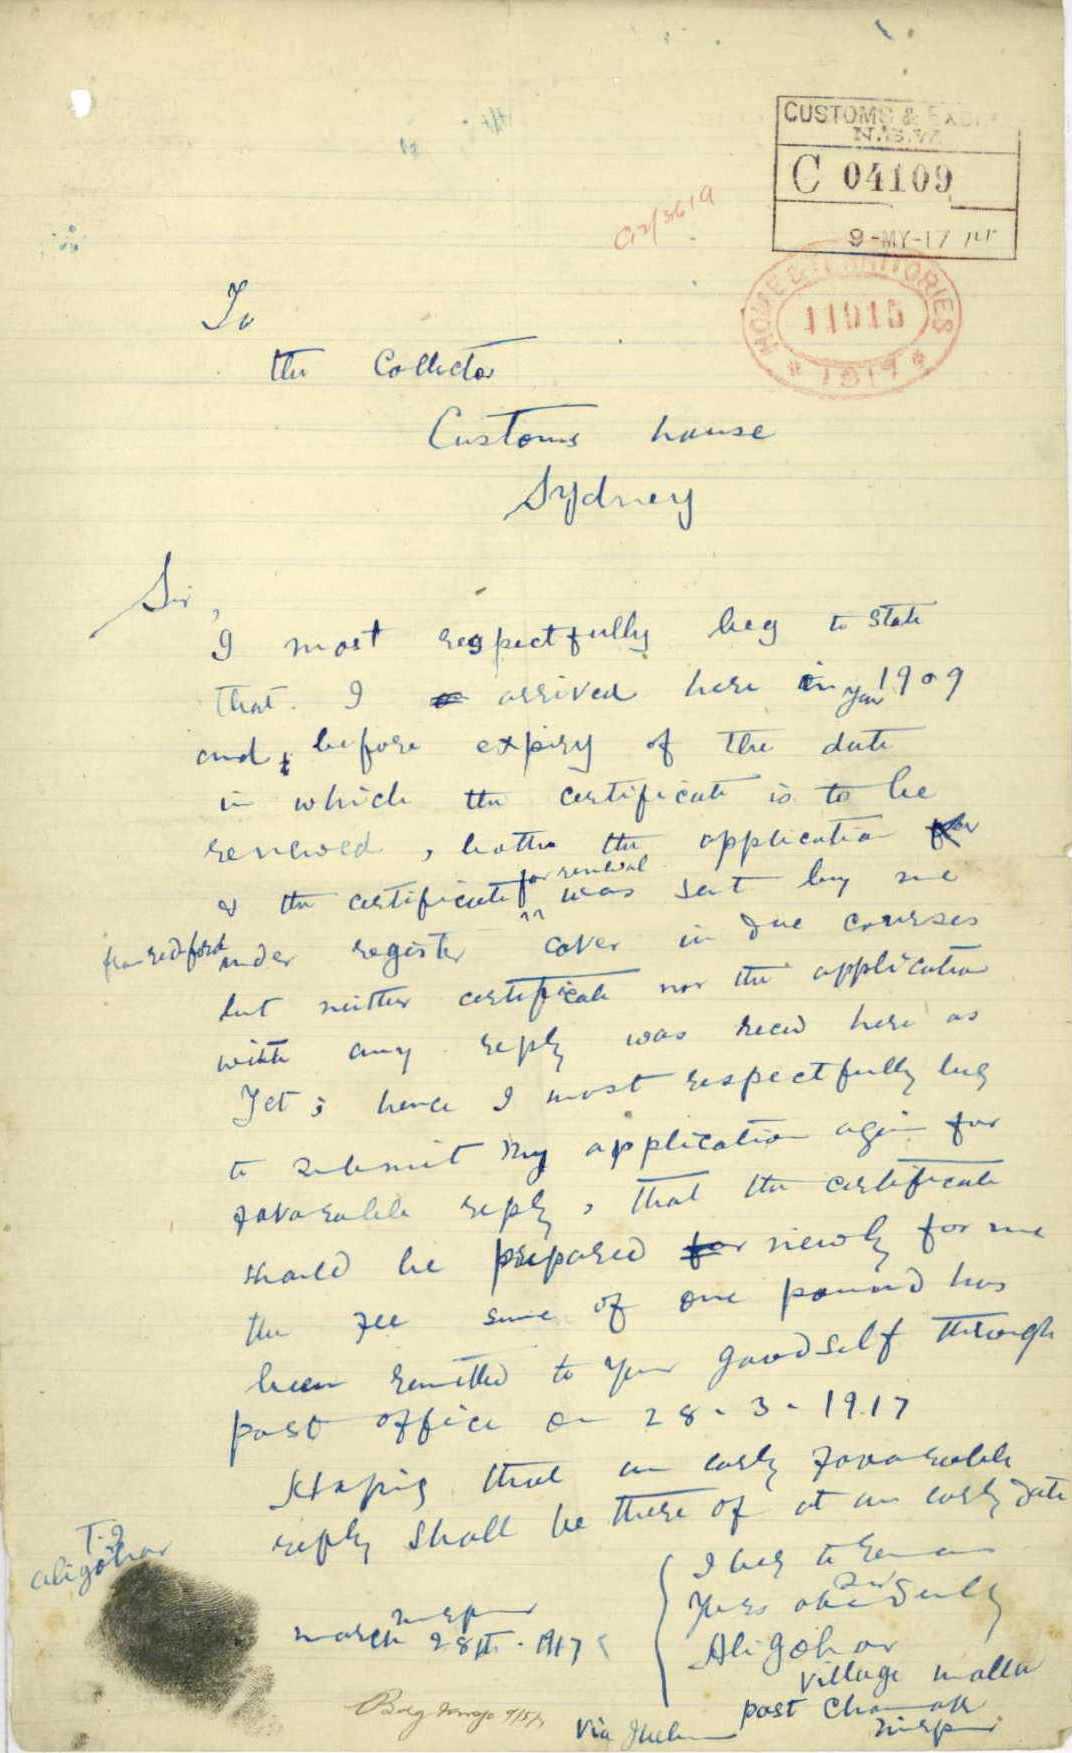 CUSTOMS & EXCI
N.S.W.
C 04109
9-MY-17
C17/3619
HOME & TERRITORIES
11915
* 1917 *
To
the Collector
Customs house
Sydney
Sir,
I most respectfully beg to state
that I arrived here in year 1909
and, before expiry of the date
in which the certificate is to be
renewed, bothe the application for
& the certificate for renewal was sent by me
from redford under register cover in due courses
but neither certificate nor the application
with any reply was recvd here as
Yet; hence I most respectfully beg
to submit my application again for
favorable reply, that the certificate
should be prepared for newly for me
the fee sume of one pound has
been remitted to your goodself through
post office on 28-3-1917
Hoping that an early favourable
reply shall be there of at an early date
I beg to remain
Yours obediently
Ali gohar
Village malla
post Chamak
mirpur
Via Jhelum
T. I
aligohar
mirpur
march 28th. 1917